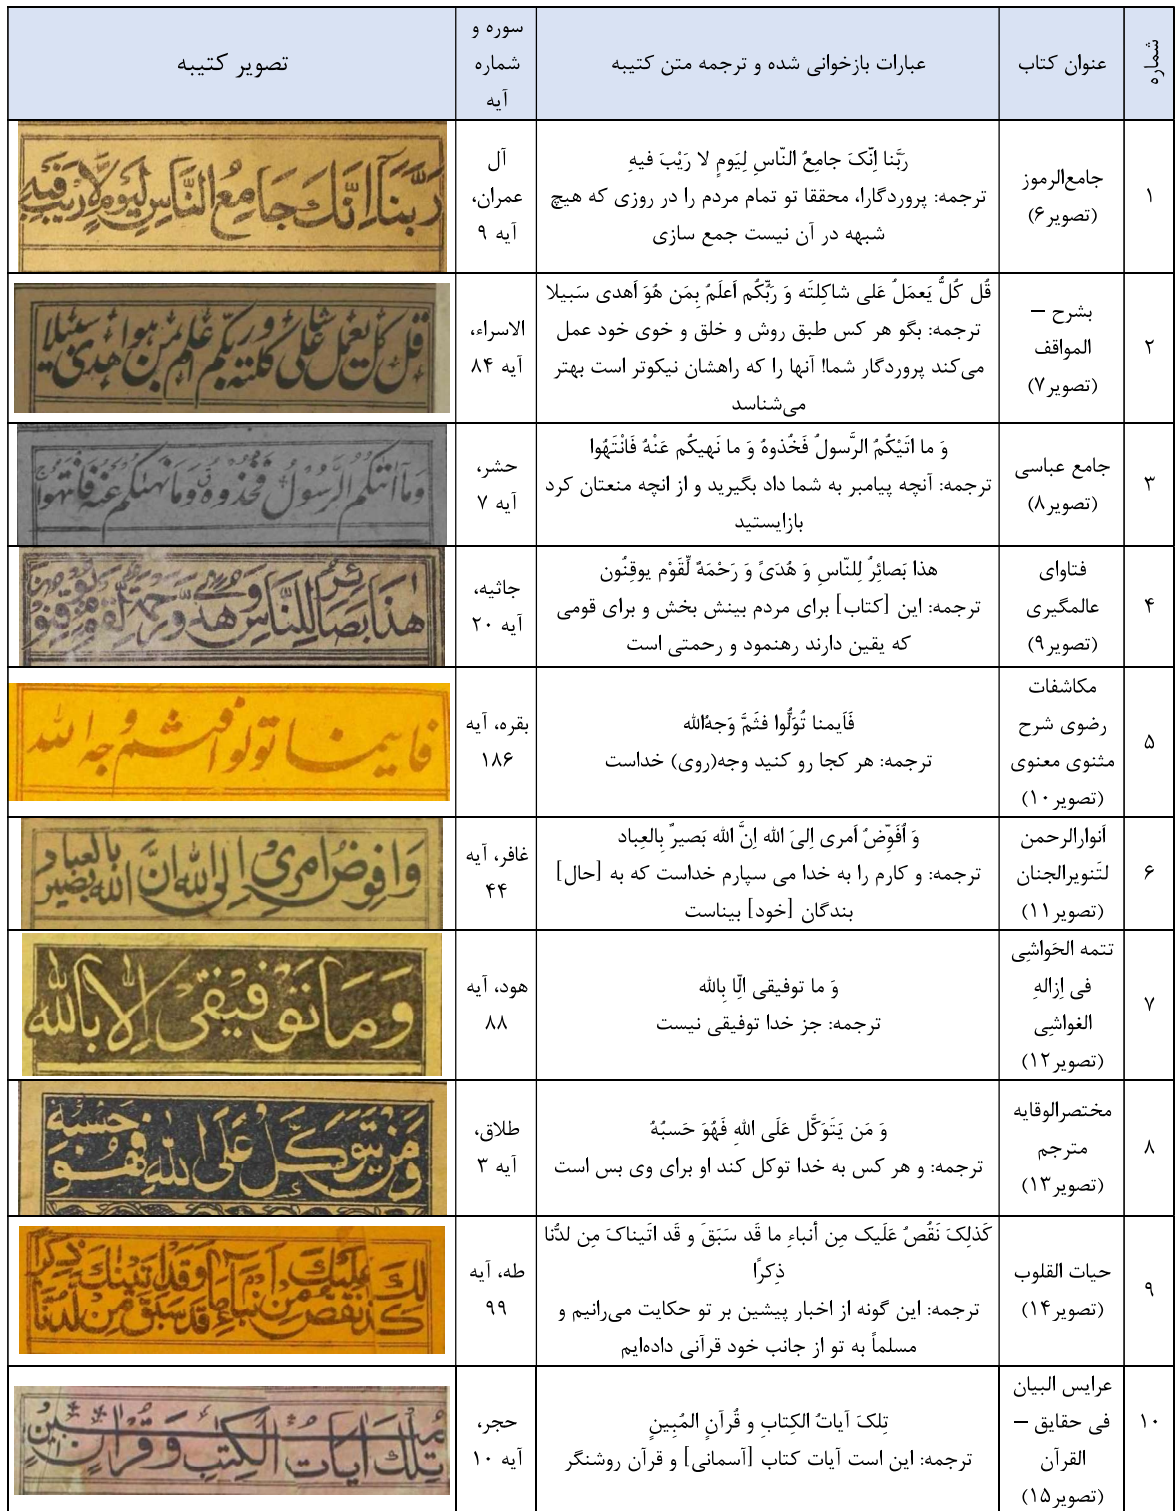 شماره
عنوان کتاب
عبارات بازخوانی شده و ترجمه متن کتیبه
سوره و
شماره
آیه
تصویر کتیبه
۱
جامع‌الرموز
(تصویر۶)
رَبَّنا اِنّکَ جامِعُ النّاسِ لِیَومٍ لا رَیْبَ فیهِ
ترجمه: پروردگارا، محققا تو تمام مردم را در روزی که هیچ
شبهه در آن نیست جمع سازی
آل
عمران،
آیه ۹
رَبَّنَا اِنَّكَ جَامِعُ النَّاسِ لِيَوْمٍ لَّارَيْبَ فِيْهِ
۲
بشرح –
المواقف
(تصویر۷)
قُل کُلُّ یَعمَلُ عَلی شاکِلتَه وَ رَبَّکُم اَعلَمُ بِمَن هُوَ اَهدی سَبیلا
ترجمه: بگو هر کس طبق روش و خلق و خوی خود عمل
می‌کند پروردگار شما! آنها را که راهشان نیکوتر است بهتر
می‌شناسد
الاسراء،
آیه ۸۴
قل كل يعمل على شاكلته وربكم اعلم بمن هو اهدى سبيلا
۳
جامع عباسی
(تصویر۸)
وَ ما اتَیْکُمُ الرَّسولُ فَخُذوهُ وَ ما نَهیکُم عَنْهُ فَانْتَهُوا
ترجمه: آنچه پیامبر به شما داد بگیرید و از انچه منعتان کرد
بازایستید
حشر،
آیه ۷
وَمَآ اٰتٰكُمُ الرَّسُوْلُ فَخُذُوْهُ وَمَا نَهٰىكُمْ عَنْهُ فَانْتَهُوْا
۴
فتاوای
عالمگیری
(تصویر۹)
هذا بَصائِرُ لِلنّاسِ وَ هُدَیً وَ رَحْمَهٌ لِّقَوْم یوقِنُون
ترجمه: این [کتاب] برای مردم بینش بخش و برای قومی
که یقین دارند رهنمود و رحمتی است
جاثیه،
آیه ۲۰
هٰذَا بَصَائِرُ لِلنَّاسِ وَهُدًى وَّرَحْمَةٌ لِّقَوْمٍ يُّوْقِنُوْنَ
۵
مکاشفات
رضوی شرح
مثنوی معنوی
(تصویر۱۰)
فَاَیمنا تُوَلُّوا فَثَمَّ وَجهُ‌الله
ترجمه: هر کجا رو کنید وجه(روی) خداست
بقره، آیه
۱۸۶
فاينما تولوا فثم وجه الله
۶
اَنوارالرحمن
لتَنویرالجنان
(تصویر۱۱)
وَ اُفَوِّضُ اَمری اِلیَ الله اِنَّ الله بَصیرٌ بِالعِباد
ترجمه: و کارم را به خدا می سپارم خداست که به [حال]
بندگان [خود] بیناست
غافر، آیه
۴۴
وَاُفَوِّضُ اَمْرِىْ اِلَى اللّٰهِ اِنَّ اللّٰهَ بَصِيْرٌ بِالْعِبَادِ
۷
تتمه الحَواشِی
فی اِزالهِ
الغواشِی
(تصویر۱۲)
وَ ما توفیقی الّا بِالله
ترجمه: جز خدا توفیقی نیست
هود، آیه
۸۸
وَمَا تَوْفِيْقِىْ اِلَّا بِاللّٰهِ
۸
مختصرالوقایه
مترجم
(تصویر۱۳)
وَ مَن یَتَوَکَّل عَلَی اللهِ فَهُوَ حَسبُهُ
ترجمه: و هر کس به خدا توکل کند او برای وی بس است
طلاق،
آیه ۳
وَمَنْ يَتَوَكَّلْ عَلَى اللّٰهِ فَهُوَ حَسْبُهٗ
۹
حیات القلوب
(تصویر۱۴)
کَذلِکَ نَقُصُ عَلَیک مِن أنباءِ ما قَد سَبَقَ و قَد اتَیناکَ مِن لدُّنا
ذِکرًا
ترجمه: این گونه از اخبار پیشین بر تو حکایت می‌رانیم و
مسلماً به تو از جانب خود قرآنی داده‌ایم
طه، آیه
۹۹
كَذٰلِكَ نَقُصُّ عَلَيْكَ مِنْ اَنْبَآءِ مَا قَدْ سَبَقَ وَقَدْ اٰتَيْنٰكَ مِنْ لَّدُنَّا ذِكْرًا
۱۰
عرایس البیان
فی حقایق –
القرآن
(تصویر۱۵)
تِلکَ آیاتُ الکِتابِ و قُرآنٍ المُبِینٍ
ترجمه: این است آیات کتاب [آسمانی] و قرآن روشنگر
حجر،
آیه ۱۰
تِلْكَ اٰيَاتُ الْكِتٰبِ وَقُرْاٰنٍ مُّبِيْنٍ